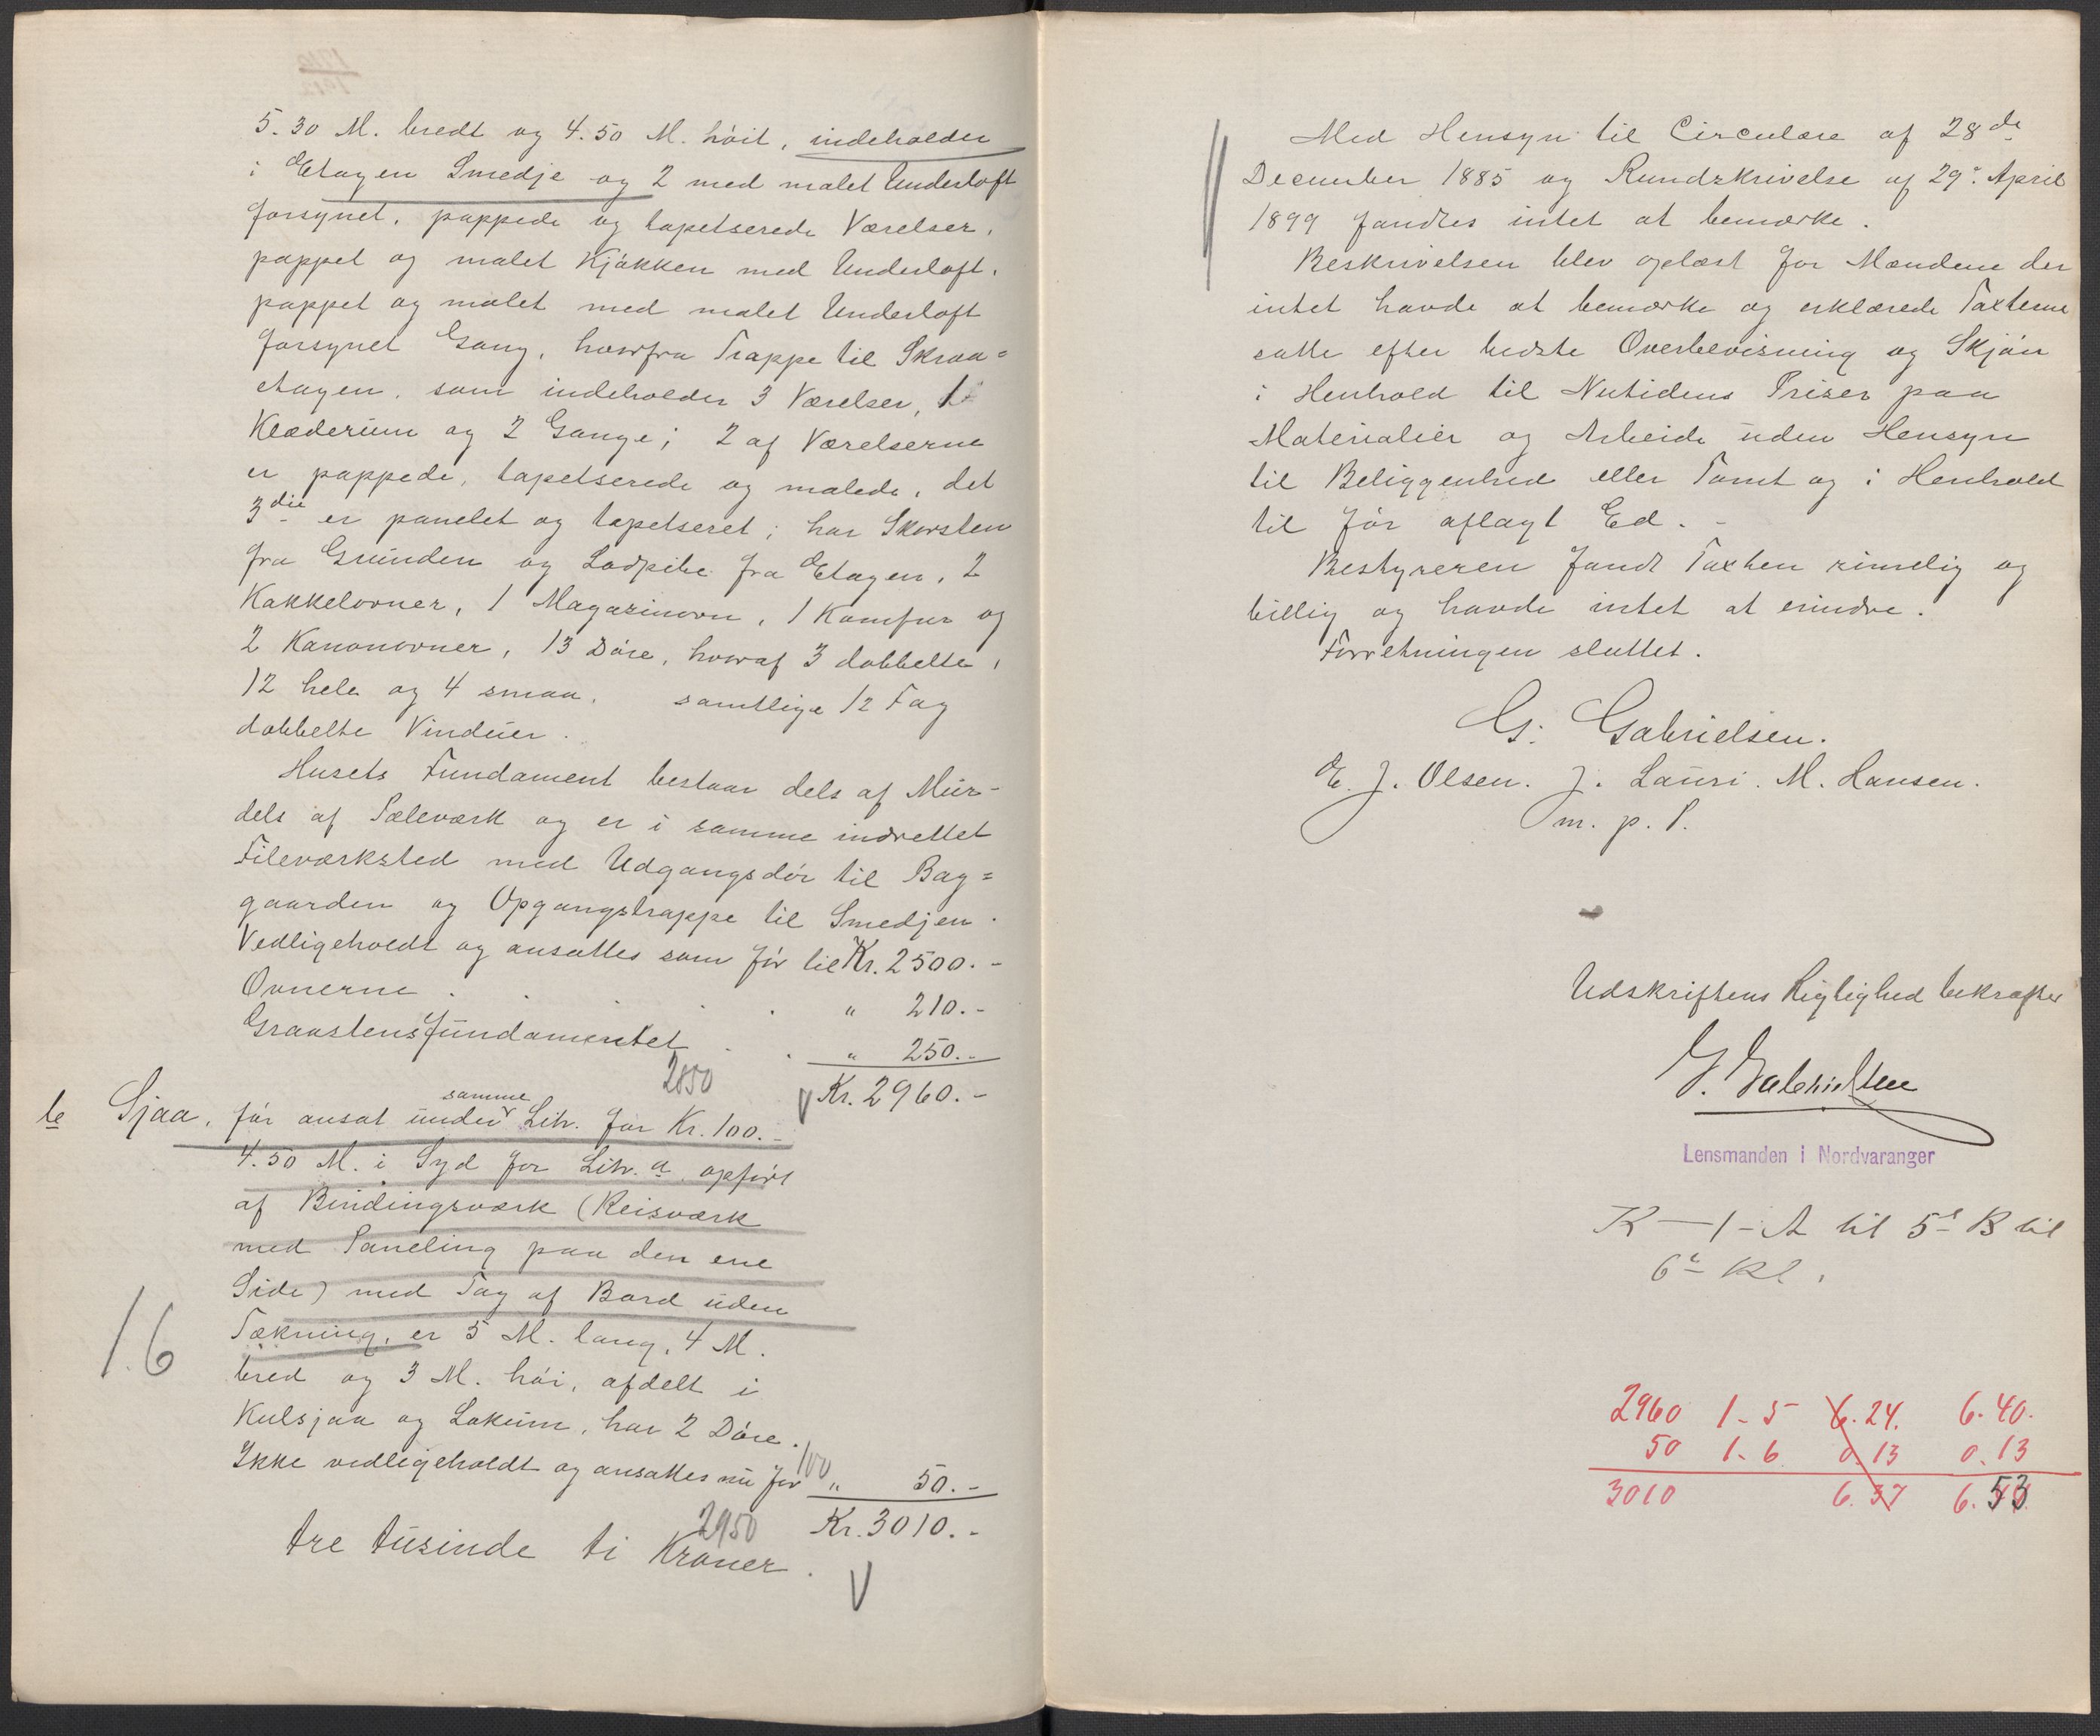 5.30 M. bredt og 4.50 M. höit, indeholder
i Etagen Smedje og 2 med malet Underloft
forsynet, pappede og tapetserede Værelser,
pappet og malet Kjökken med Underloft,
pappet og malet med malet Underloft
forsynet Gang, hvorfra Trappe til Skraa=
etagen, som indeholder 3 Værelser, 1
Klæderum og 2 Gange; 2 af Værelserne
er pappede, tapetserede og malede, det
3die er panelet og tapetseret; har Skorsten
fra Grunden og Lodpibe fra Etagen, 2
Kakkelovner, 1 Magazinovn, 1 Komfur og
2 Kanonovner, 13 Döre, hvoraf 3 dobbelte,
12 hele og 4 smaa, samtlige 12 Fag
dobbelte Vinduer.
Husets Fundament bestaar dels af Mur-
dels af Pæleværk og er i samme indrettet
Fileværksted med Udgangsdör til Bag=
gaarden og Opgangstrappe til Smedjen.
Vedligeholdt og ansattes som för til Kr. 2500.-
Ovnerne . . . . " 210.-
Graastensfundamentet . . " 250.-
2850 V Kr. 2960.-
samme
b Sjaa, för ansat under Litr. for Kr. 100.-
4.50 M. i Syd for Litr. a opfört
af Bindingsværk (Reisværk
med Paneling paa den ene
Side) med Tag af Bord uden
Tækning, er 5 M. lang, 4 M.
1.6
bred og 3 M. höi, afdelt i
Kulsjaa og Lokum, har 2 Döre.
100
Ikke vedligeholdt og ansattes nu for " 50.-
2950 Kr. 3010.-
tre tusinde ti Kroner.
V
Med Hensyn til Circulære af 28de
December 1885 og Rundskrivelse af 29. April
1899 fandtes intet at bemærke.
Beskrivelsen blev oplæst for Mændene der
intet havde at bemærke og erklærede Taxterne
satte efter bedste Overbevisning og Skjön
i Henhold til Nutidens Priser paa
Materialier og Arbeide uden Hensyn
til Beliggenhed eller Tomt og i Henhold
til för aflagt Ed. -
Bestyreren fandt Taxten rimelig og
billig og havde intet at erindre.
Forretningen sluttet.
G. Gabrielsen.
E. J. Olsen. J. Lauri. M. Hansen.
m. p. P.
Udskriftens Rigtighed bekræfter
G. Gabrielsen
Lensmanden i Nordvaranger
K - 1 - A til 5te B til
6te Kl.
2960 1-5 6.24. 6.40.
50 1-6 0.13 0.13
3010 6.37 6.53